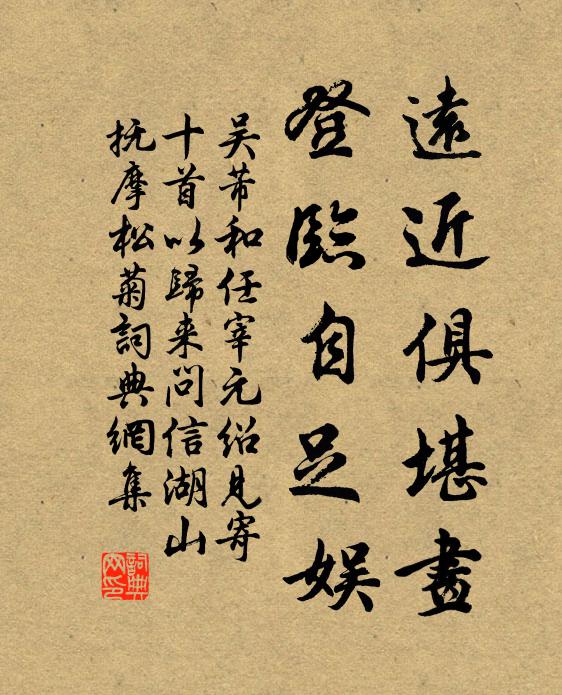 遠近俱堪畫
登臨自足娱
吴芾和任宰元绍見寄
十首以歸来问信湖山
抚摩松菊詞典網集
詞典网印